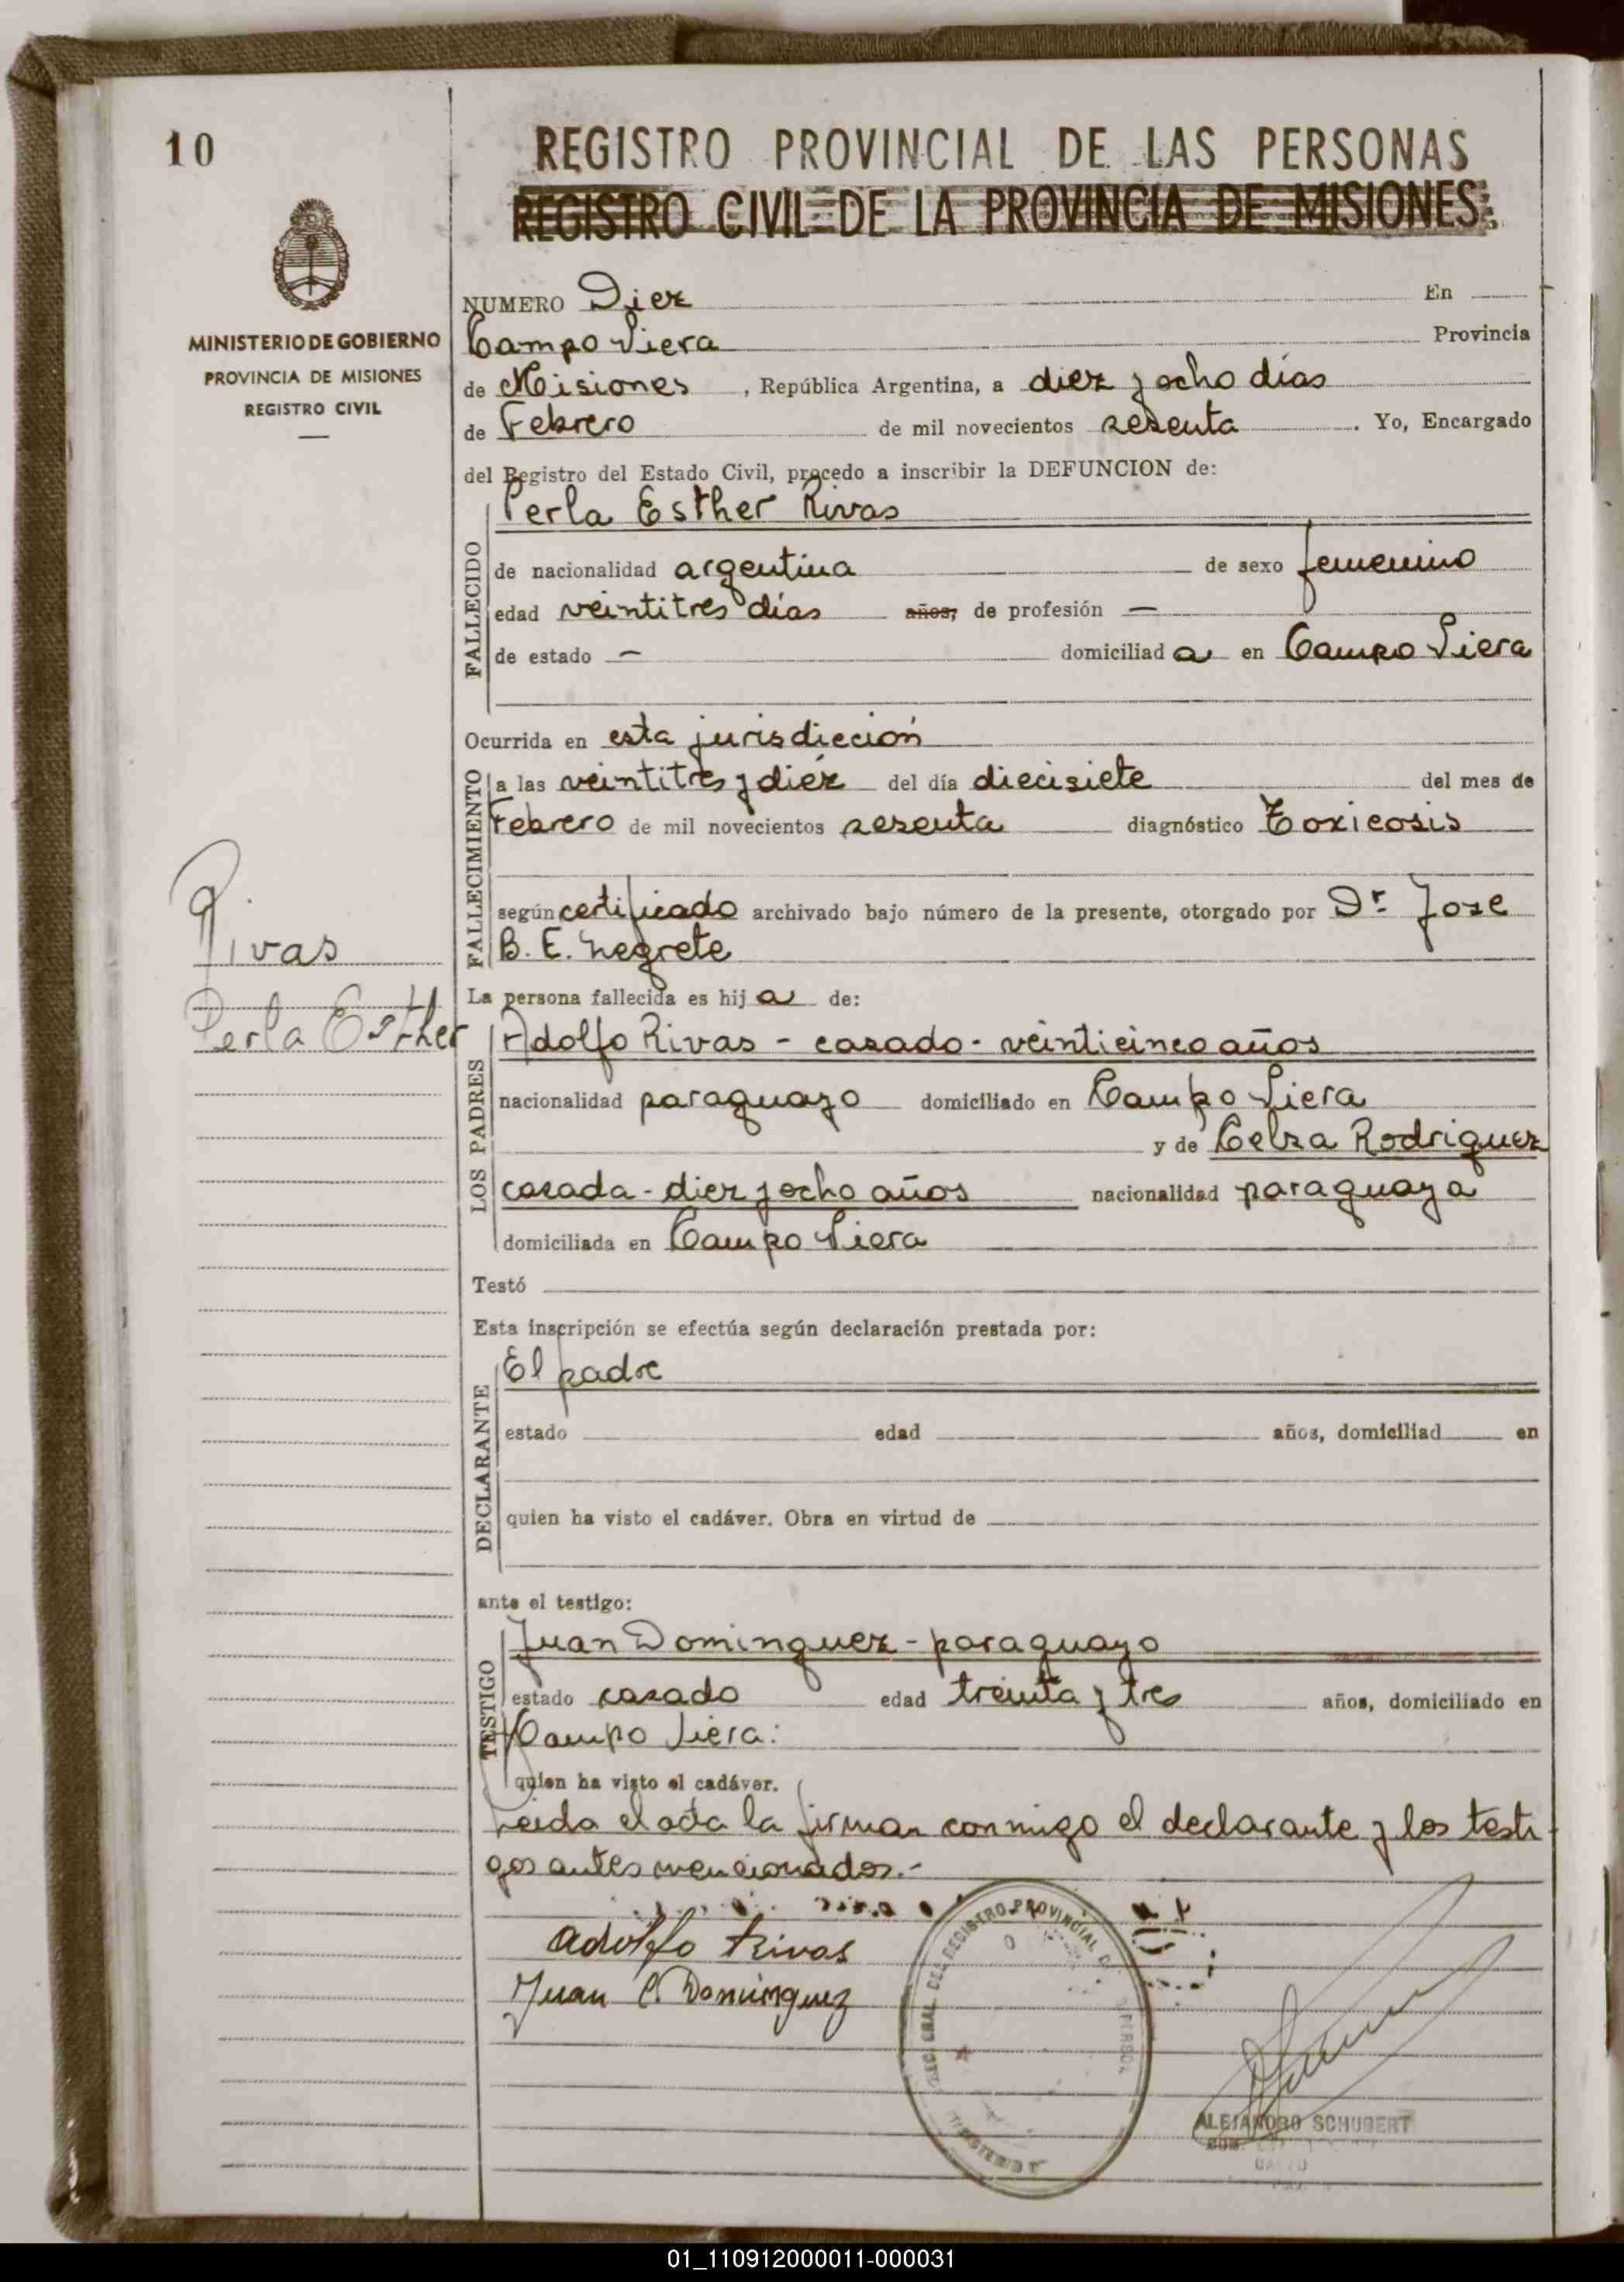 10
REGISTRO PROVINCIAL DE LAS PERSONAS
REGISTRO CIVIL DE LA PROVINCIA DE MISIONES
MINISTERIO DE GOBIERNO
PROVINCIA DE MISIONES
REGISTRO CIVIL
NUMERO Diez En
Campo Viera Provincia
de Misiones, República Argentina, a diez y ocho días
de Febrero de mil novecientos sesenta. Yo, Encargado
del Registro del Estado Civil, procedo a inscribir la DEFUNCION de:
FALLECIDO
Perla Esther Rivas
de nacionalidad argentina de sexo femenino
edad veintitres días años, de profesión —
de estado — domiciliada en Campo Viera
Ocurrida en esta jurisdiccion
FALLECIMIENTO
a las veintitres y diez del día diecisiete del mes de
Febrero de mil novecientos sesenta diagnóstico Toxicosis
según certificado archivado bajo número de la presente, otorgado por Dr. Jose
B. E. Negrete
Rivas
Perla Esther
La persona fallecida es hija de:
LOS PADRES
Adolfo Rivas - casado - veinticinco años
nacionalidad paraguayo domiciliado en Campo Viera
y de Celza Rodriguez
casada - diez y ocho años nacionalidad paraguaya
domiciliada en Campo Viera
Testó
Esta inscripción se efectúa según declaración prestada por:
DECLARANTE
El padre
estado edad años, domiciliad en
quien ha visto el cadáver. Obra en virtud de
ante el testigo:
TESTIGO
Juan Dominguez - paraguayo
estado casado edad treinta y tres años, domiciliado en
Campo Viera.
quien ha visto el cadáver.
Leida el acta la firman conmigo el declarante y los testi
gos antes mencionados.-
Adolfo Rivas
Juan C. Dominguez
REGISTRO PROVINCIAL D
ALEJANDRO SCHUBERT
01_110912000011-000031